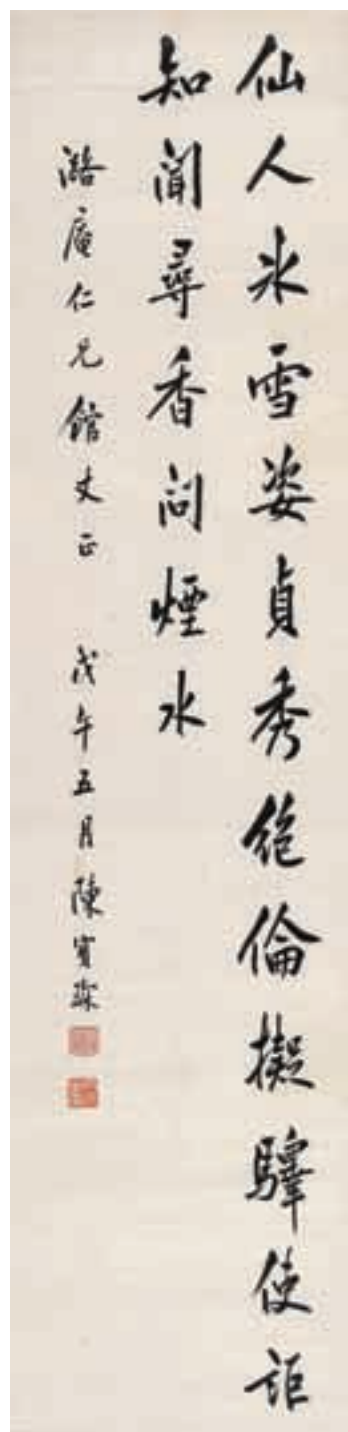 仙人冰雪姿貞秀絕倫擬驛使詎
知聞尋香問煙水
潞庵仁兄館丈正 戊午五月陳寶琛